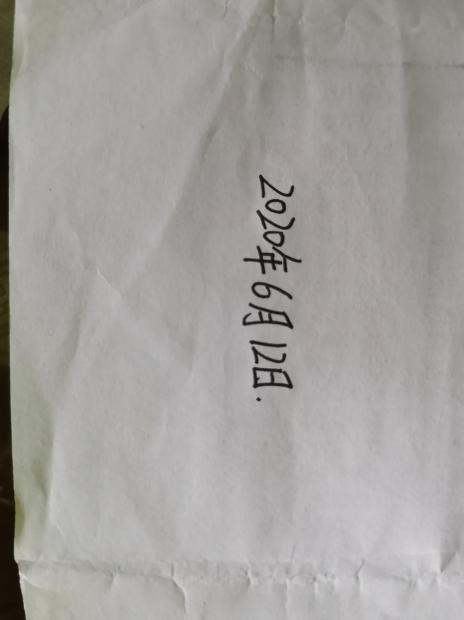 2020年6月12日.